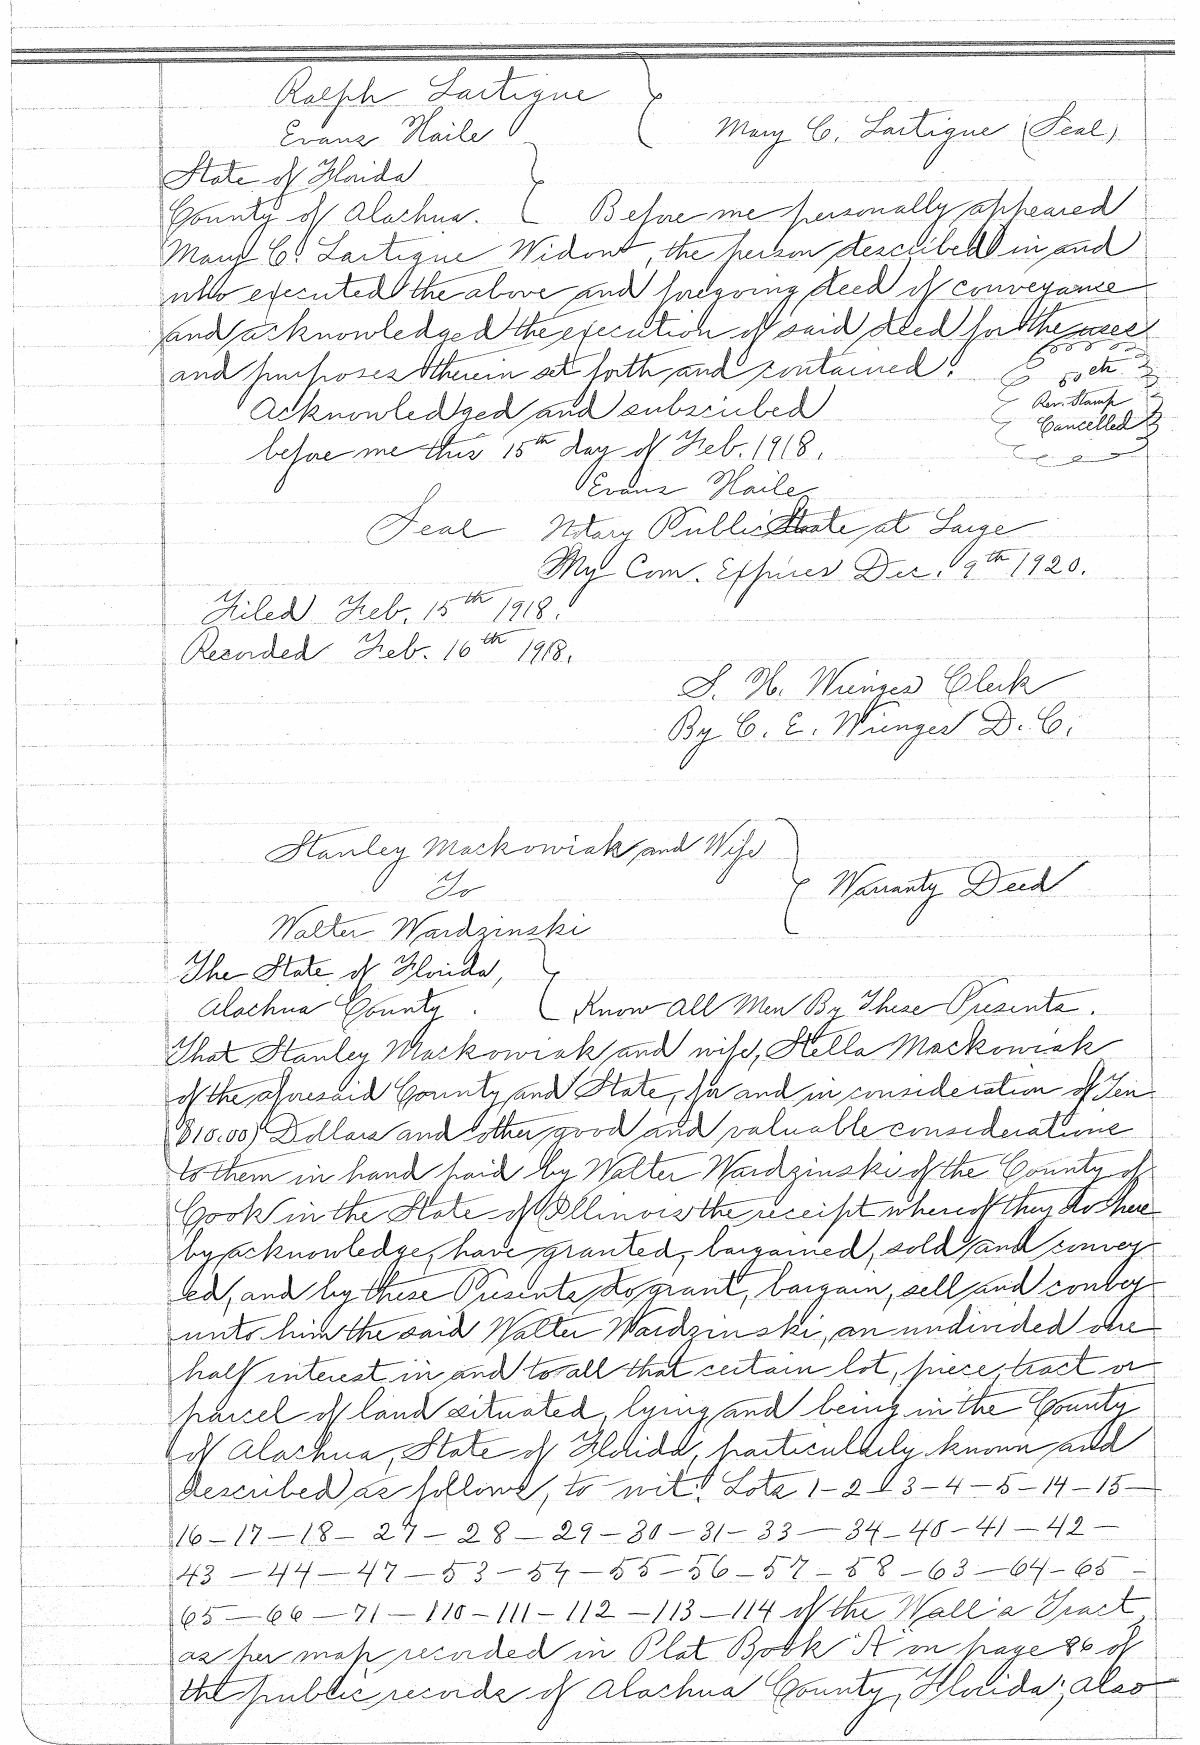 Ralph Lartigue
Evans Haile
Mary C. Lartigue (Seal)
State of Florida
County of Alachua. Before me personally appeared
Mary C. Lartigue Widow, the person described in and
who executed the above and foregoing deed of conveyance
and acknowledged the execution of said deed for the uses
and purposes therein set forth and contained.
50 cts.
Rev. Stamp
Cancelled
Acknowledged and subscribed
before me this 15th day of Feb. 1918.
Evans Haile
Seal Notary Public State at Large
My Com. Expires Dec. 9th 1920.
Filed Feb. 15th 1918.
Recorded Feb. 16th 1918.
S. H. Wienges Clerk
By C. E. Wienges D. C.
Stanley Mackowiak and Wife
To
Warranty Deed
Walter Wardzinski
The State of Florida,
Alachua County. Know All Men By These Presents.
That Stanley Mackowiak and wife, Stella Mackowiak
of the aforesaid County and State, for and in consideration of Ten
$10.00) Dollars and other good and valuable considerations
to them in hand paid by Walter Wardzinski of the County of
Cook in the State of Illinois the receipt whereof they do here
by acknowledge, have granted, bargained, sold and convey
ed, and by these Presents do grant, bargain, sell and convey
unto him the said Walter Wardzinski, an undivided one
half interest in and to all that certain lot, piece, tract or
parcel of land situated, lying and being in the County
of Alachua, State of Florida, particularly known and
described as follows, to wit: Lots 1-2-3-4-5-14-15-
16-17-18-27-28-29-30-31-33-34-40-41-42-
43-44-47-53-54-55-56-57-58-63-64-65-
65-66-71-110-111-112-113-114 of the Wall's Tract
as per map recorded in Plat Book "A" on page 86 of
the public records of Alachua County, Florida; also